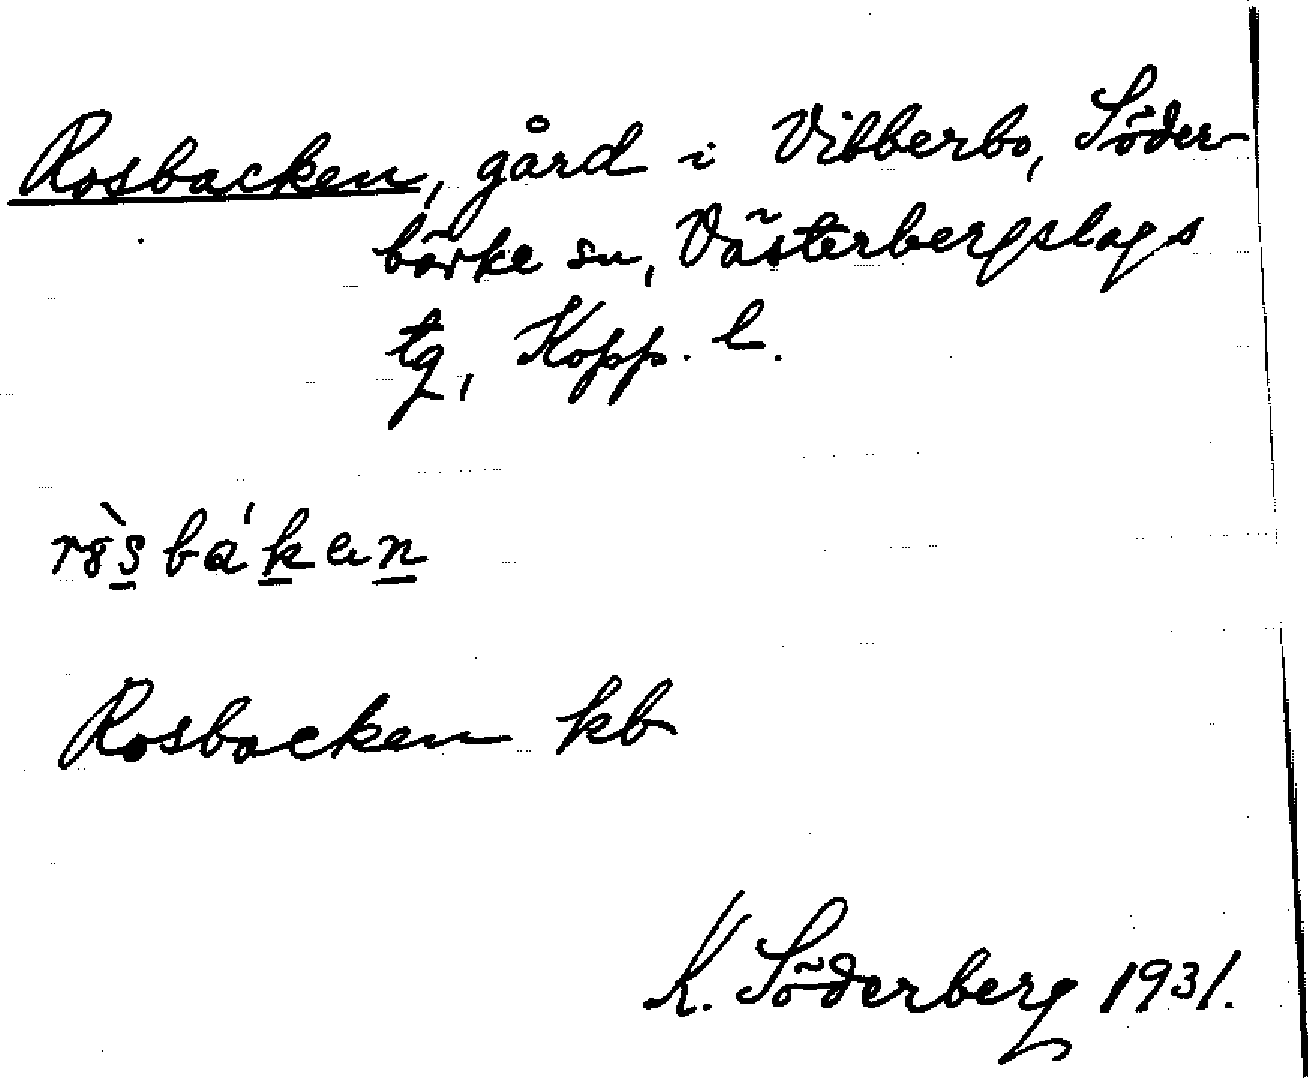 Rosbacken, gård i Vibberbo, Söder-
bärke sn, Västerbergslags
tg, Kopp. l.
Rosbacken kb
K. Söderberg 1931.